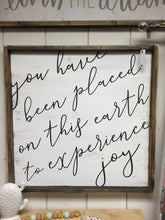 you have
been placed
on this earth
to experience
joy